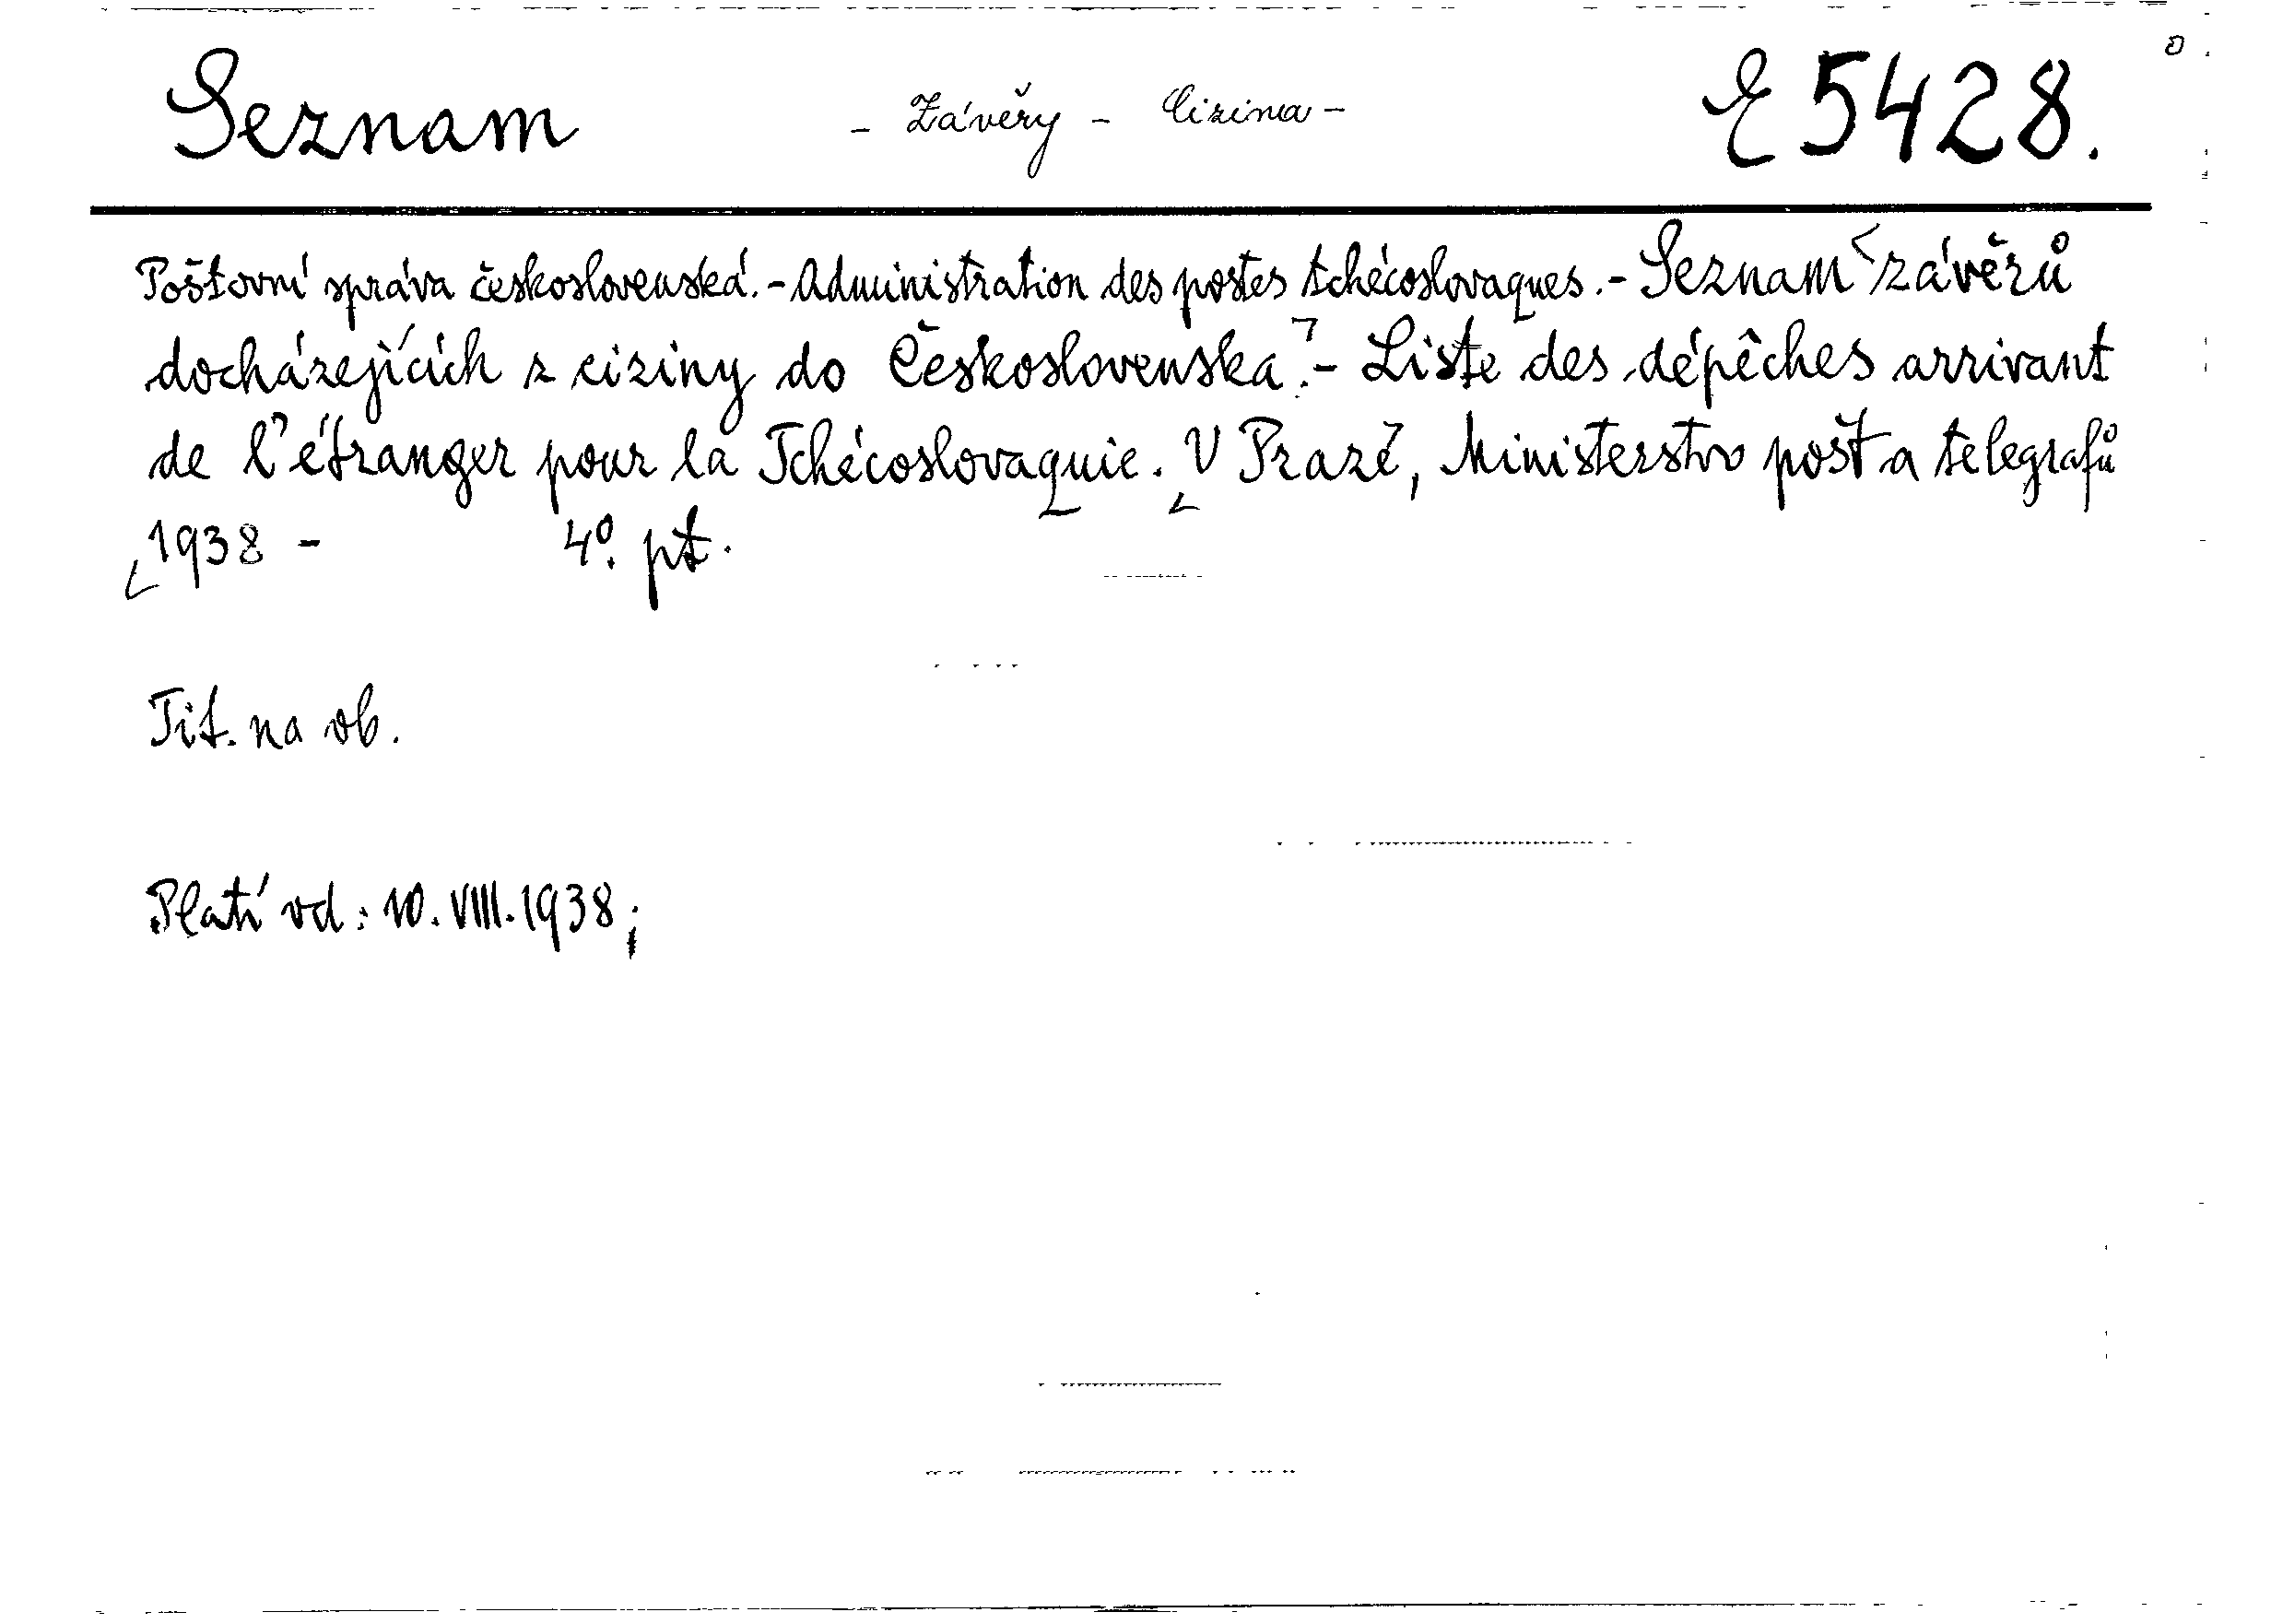 Seznam - Závěry - Cizina - E 5428.
Poštovní správa československá. - Administration des postes tchécoslovaques. - Seznam závěrů
docházejících z ciziny do Československa. - Liste des dépêches arrivant
de l'étranger pour la Tchécoslovaquie. V Praze, Ministerstvo pošt a telegrafů
1938 - 4º. pt.
Tit. na ob.
Platí od: 10. VIII. 1938;